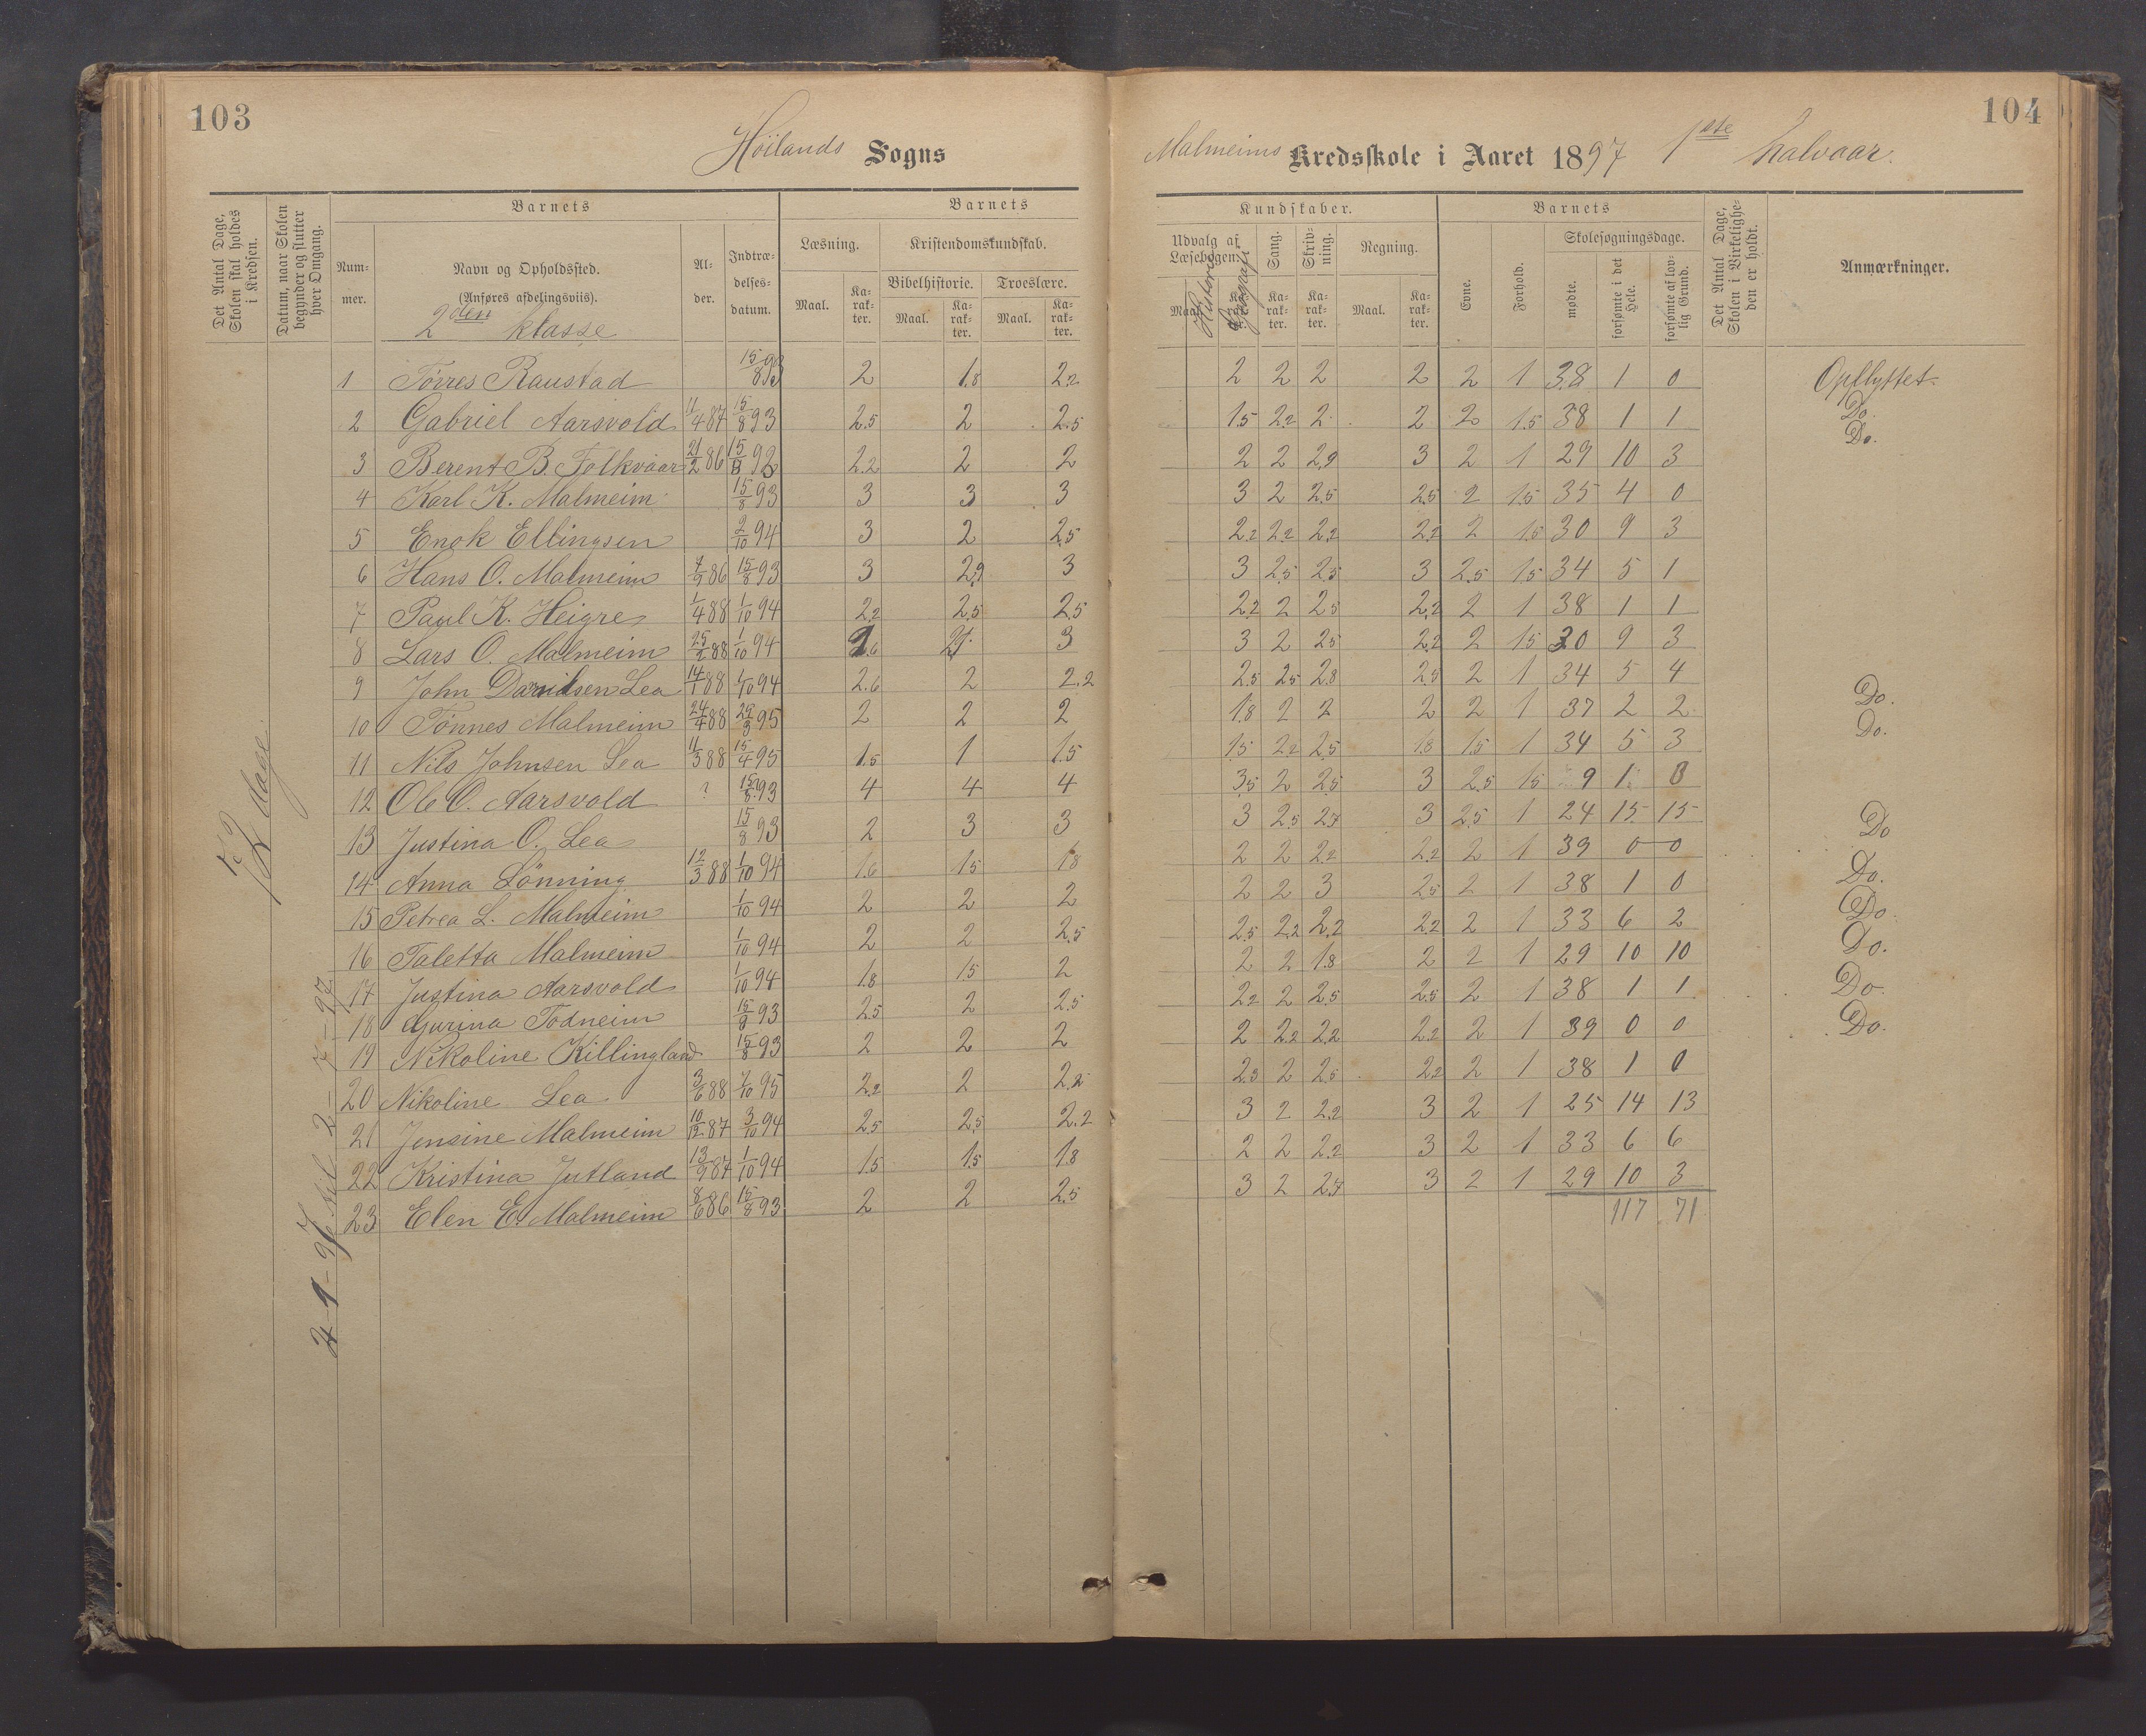 103
Höilands Sogns
Det Antal Dage, Skolen skal holdes i Kredsen.
Datum, naar Skolen begynder og slutter hver Omgang.
Barnets
Barnets
Num-mer.
Navn og Opholdssted.
(Anføres afdelingsviis).
2den klasse
Al-der.
Indtræ-delses-datum.
Læsning.
Kristendomskundskab.
Bibelhistorie.
Troeslære.
Maal.
Ka-rak-ter.
Maal.
Ka-rak-ter.
Maal.
Ka-rak-ter.
72 dage.
4-1-97 til 2-7-97
1 Törres Raustad 15/8 93 2 1.8 2.2
2 Gabriel Aarsvold 11/4 87 15/8 93 2.5 2 2.5
3 Berent B. Folkvoar 21/2 86 15/8 93 2.2 2 2
4 Karl K. Malmeim 15/8 93 3 3 3
5 Enok Ellingsen 2/10 94 3 2 2.5
6 Hans O. Malmeim 7/9 86 15/8 93 3 2.9 3
7 Paul K. Heigre 1/4 88 1/10 94 2.2 2.5 2.5
8 Lars O. Malmeim 25/2 88 1/10 94 2.6 3
9 John Davidsen Lea 14/1 88 1/10 94 2.6 2 2.2
10 Tönnes Malmeim 24/4 88 29/3 95 2 2 2
11 Nils Johnsen Lea 11/3 88 15/4 95 1.5 1 1.5
12 Ole O. Aarsvold ? 15/8 93 4 4 4
13 Justina O. Lea 15/8 93 2 3 3
14 Anna Lönning 12/3 88 1/10 94 1.6 1.5 1.8
15 Petrea L. Malmeim 1/10 94 2 2 2
16 Taletta Malmeim 1/10 94 2 2 2.5
17 Justina Aarsvold 1/10 94 1.8 1.5 2
18 Gurina Todneim 15/8 93 2.5 2 2.5
19 Nikoline Killingland 15/8 93 2 2 2
20 Nikoline Lea 3/6 88 7/10 95 2.2 2 2.2
21 Jensine Malmeim 10/12 87 3/10 94 2.5 2.5 2.2
22 Kristina Jutland 13/9 87 1/10 94 1.5 1.5 1.8
23 Elen E. Malmeim 8/6 86 15/8 93 2 2 2.5
104
Malmeims Kredsskole i Aaret 1897 1ste halvaar.
Kundskaber.
Barnets
Udvalg af Læsebogen.
Historie
Geografi
Sang.
Skriv-ning.
Regning.
Evne.
Forhold.
Skolesøgningsdage.
mødte.
forsømte i det Hele.
forsømte af lov-lig Grund.
Det Antal Dage, Skolen i Virkelighe-den er holdt.
Anmærkninger.
Maal.
Ka-rak-ter.
Ka-rak-ter.
Ka-rak-ter.
Maal.
Ka-rak-ter.
2 2 2 2 2 1 38 1 0 Opflyttet.
1.5 2.2 2 2 2 1.5 38 1 1 Do.
2 2 2.9 3 2 1 29 10 3 Do.
3 2 2.5 2.5 2 1.5 35 4 0
2.2 2.2 2.2 2.2 2 1.5 30 9 3
3 2.5 2.5 3 2.5 1.5 34 5 1
2.2 2 2.5 2.2 2 1 38 1 1
3 2 2.5 2.2 2 1.5 30 9 3
2.5 2.5 2.8 2.5 2 1 34 5 4
1.8 2 2 2 2 1 37 2 2 Do.
1.5 2.2 2.5 1.8 1.5 1 34 5 3 Do.
3.5 2 2.5 3 2.5 1.5 9 1 0
3 2.5 2.7 3 2.5 1 24 15 15
2 2 2.2 2.2 2 1 39 0 0 Do
2 2 3 2.5 2 1 38 1 0 Do.
2.5 2.2 2.2 2.2 2 1 33 6 2 Do.
2 2 1.8 2 2 1 29 10 10 Do.
2.2 2 2.5 2.5 2 1 38 1 1 Do.
2 2.2 2.2 2.2 2 1 39 0 0 Do.
2.3 2 2.5 2.2 2 1 38 1 0
3 2 2.2 3 2 1 25 14 13
2 2 2.2 3 2 1 33 6 6
3 2 2.7 3 2 1 29 10 3
117 71